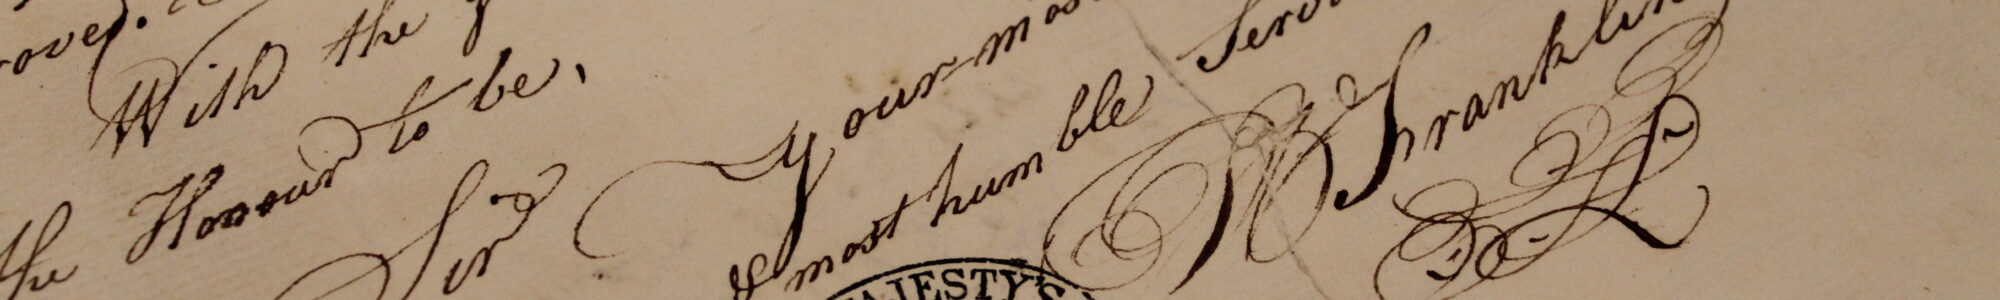 With the
the Honour to be,
Sir
Your most
& most humble
W Franklin
MAJESTY'S